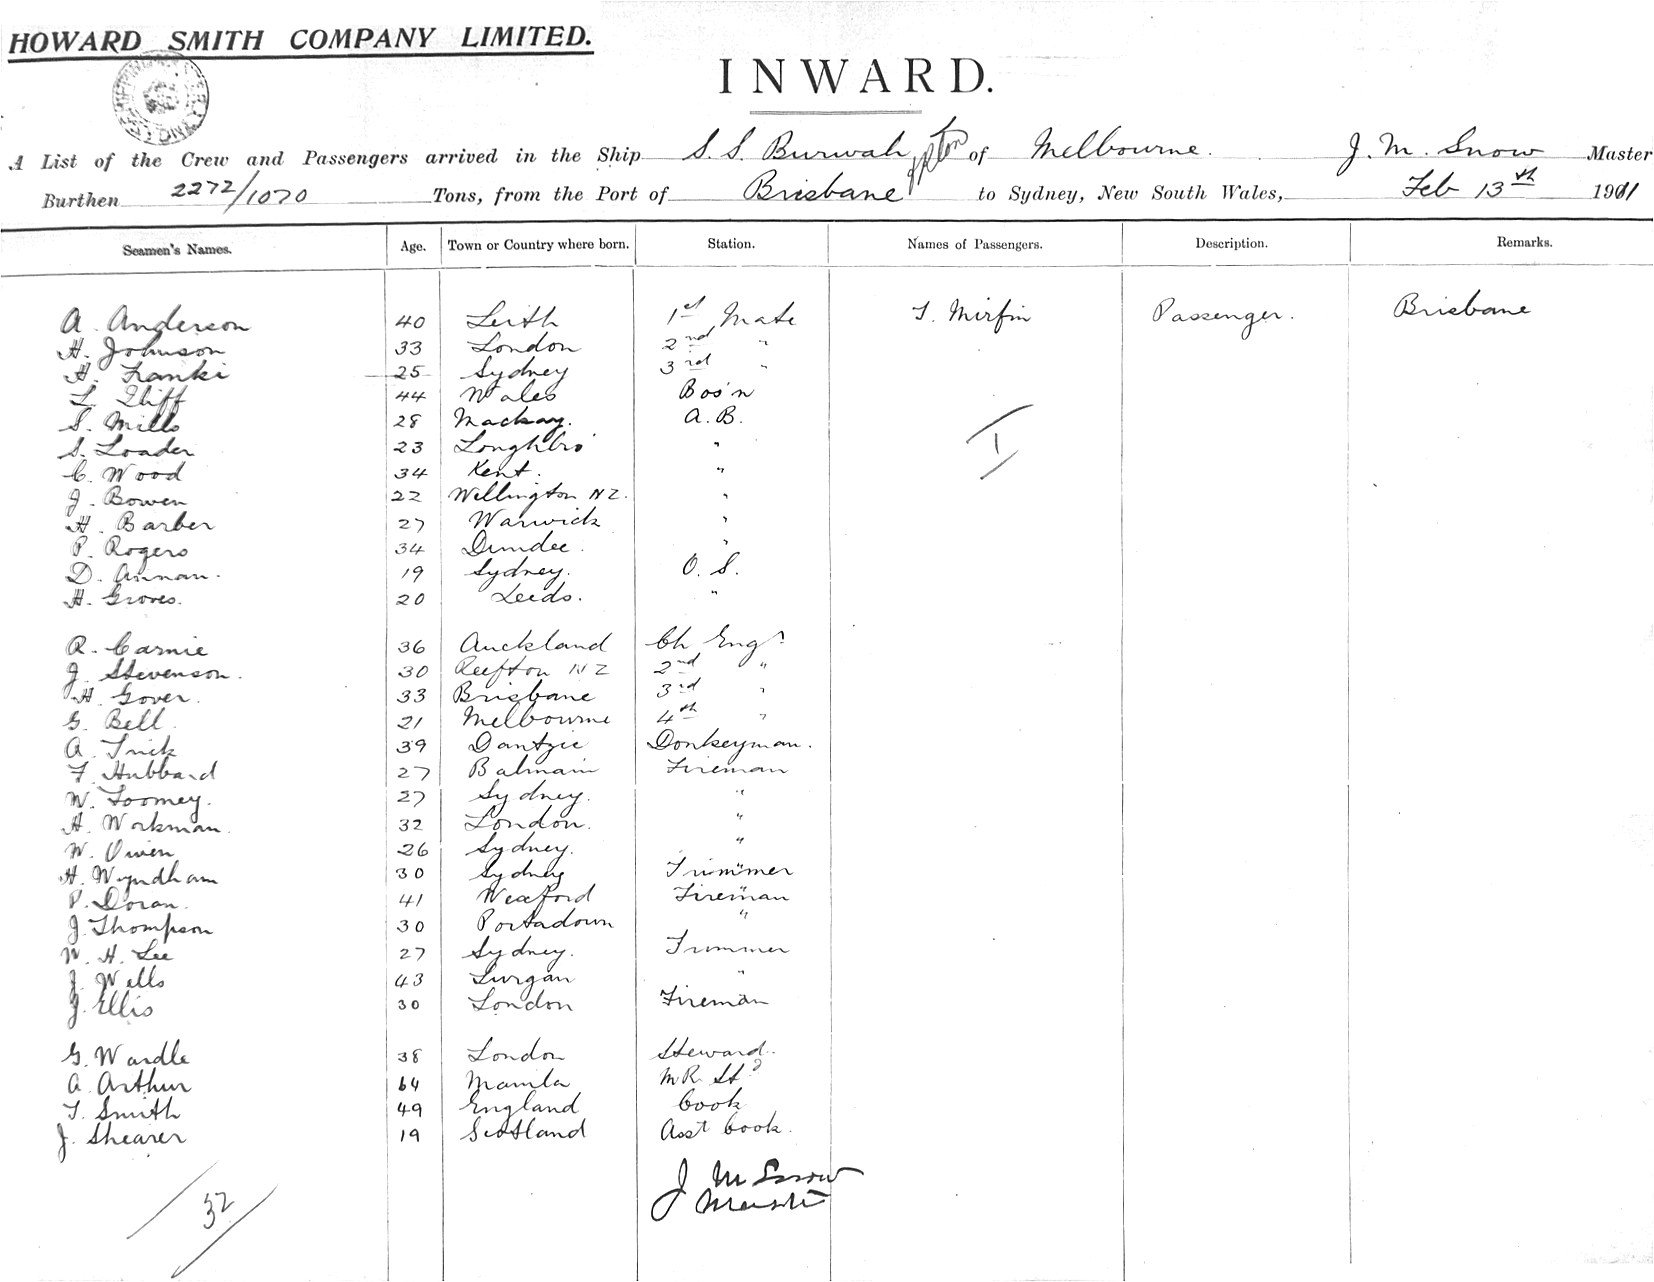 HOWARD SMITH COMPANY LIMITED.
INWARD.
A List of the Crew and Passengers arrived in the Ship S. S. Burwah of Melbourne. J. M. Snow Master
Burthen 2272/1070 Tons, from the Port of Brisbane to Sydney, New South Wales, Feb 13th 1911
Seamen's Names. Age. Town or Country where born. Station. Names of Passengers. Description. Remarks.
A. Anderson 40 Leith 1st Mate T. Mirfin Passenger. Brisbane
H. Johnson 33 London 2nd "
H. Franki 25 Sydney 3rd "
L. Iliff 44 Wales Bos'n
S. Mills 28 Mackay. A.B.
S. Loader 23 Longhbro' "
C. Wood 34 Kent. "
J. Bowen 22 Wellington NZ. "
H. Barber 27 Warwick "
P. Rogers 34 Dundee. "
D. Annan. 19 Sydney. O. S.
H. Groves. 20 Leeds. "
R. Carnie 36 Auckland Ch Engr
J. Stevenson. 30 Reefton NZ 2nd "
H. Gover. 33 Brisbane 3rd "
G. Bell. 21 Melbourne 4th "
A. Trick 39 Dantzic Donkeyman.
F. Hubbard 27 Balmain Fireman
W. Toomey. 27 Sydney. "
H. Workman. 32 London. "
W. Owen 26 Sydney. "
H. Wyndham 30 Sydney Trimmer
P. Doran. 41 Wexford Fireman
J. Thompson 30 Portadown "
W. H. Lee 27 Sydney. Trimmer
J. Wells 43 Lurgan "
J. Ellis 30 London Fireman
G. Wardle 38 London Steward.
A. Arthur 64 Manila M.R. Std
T. Smith 49 England Cook
J. Shearer 19 Scotland Asst Cook.
J M Snow
Master
32